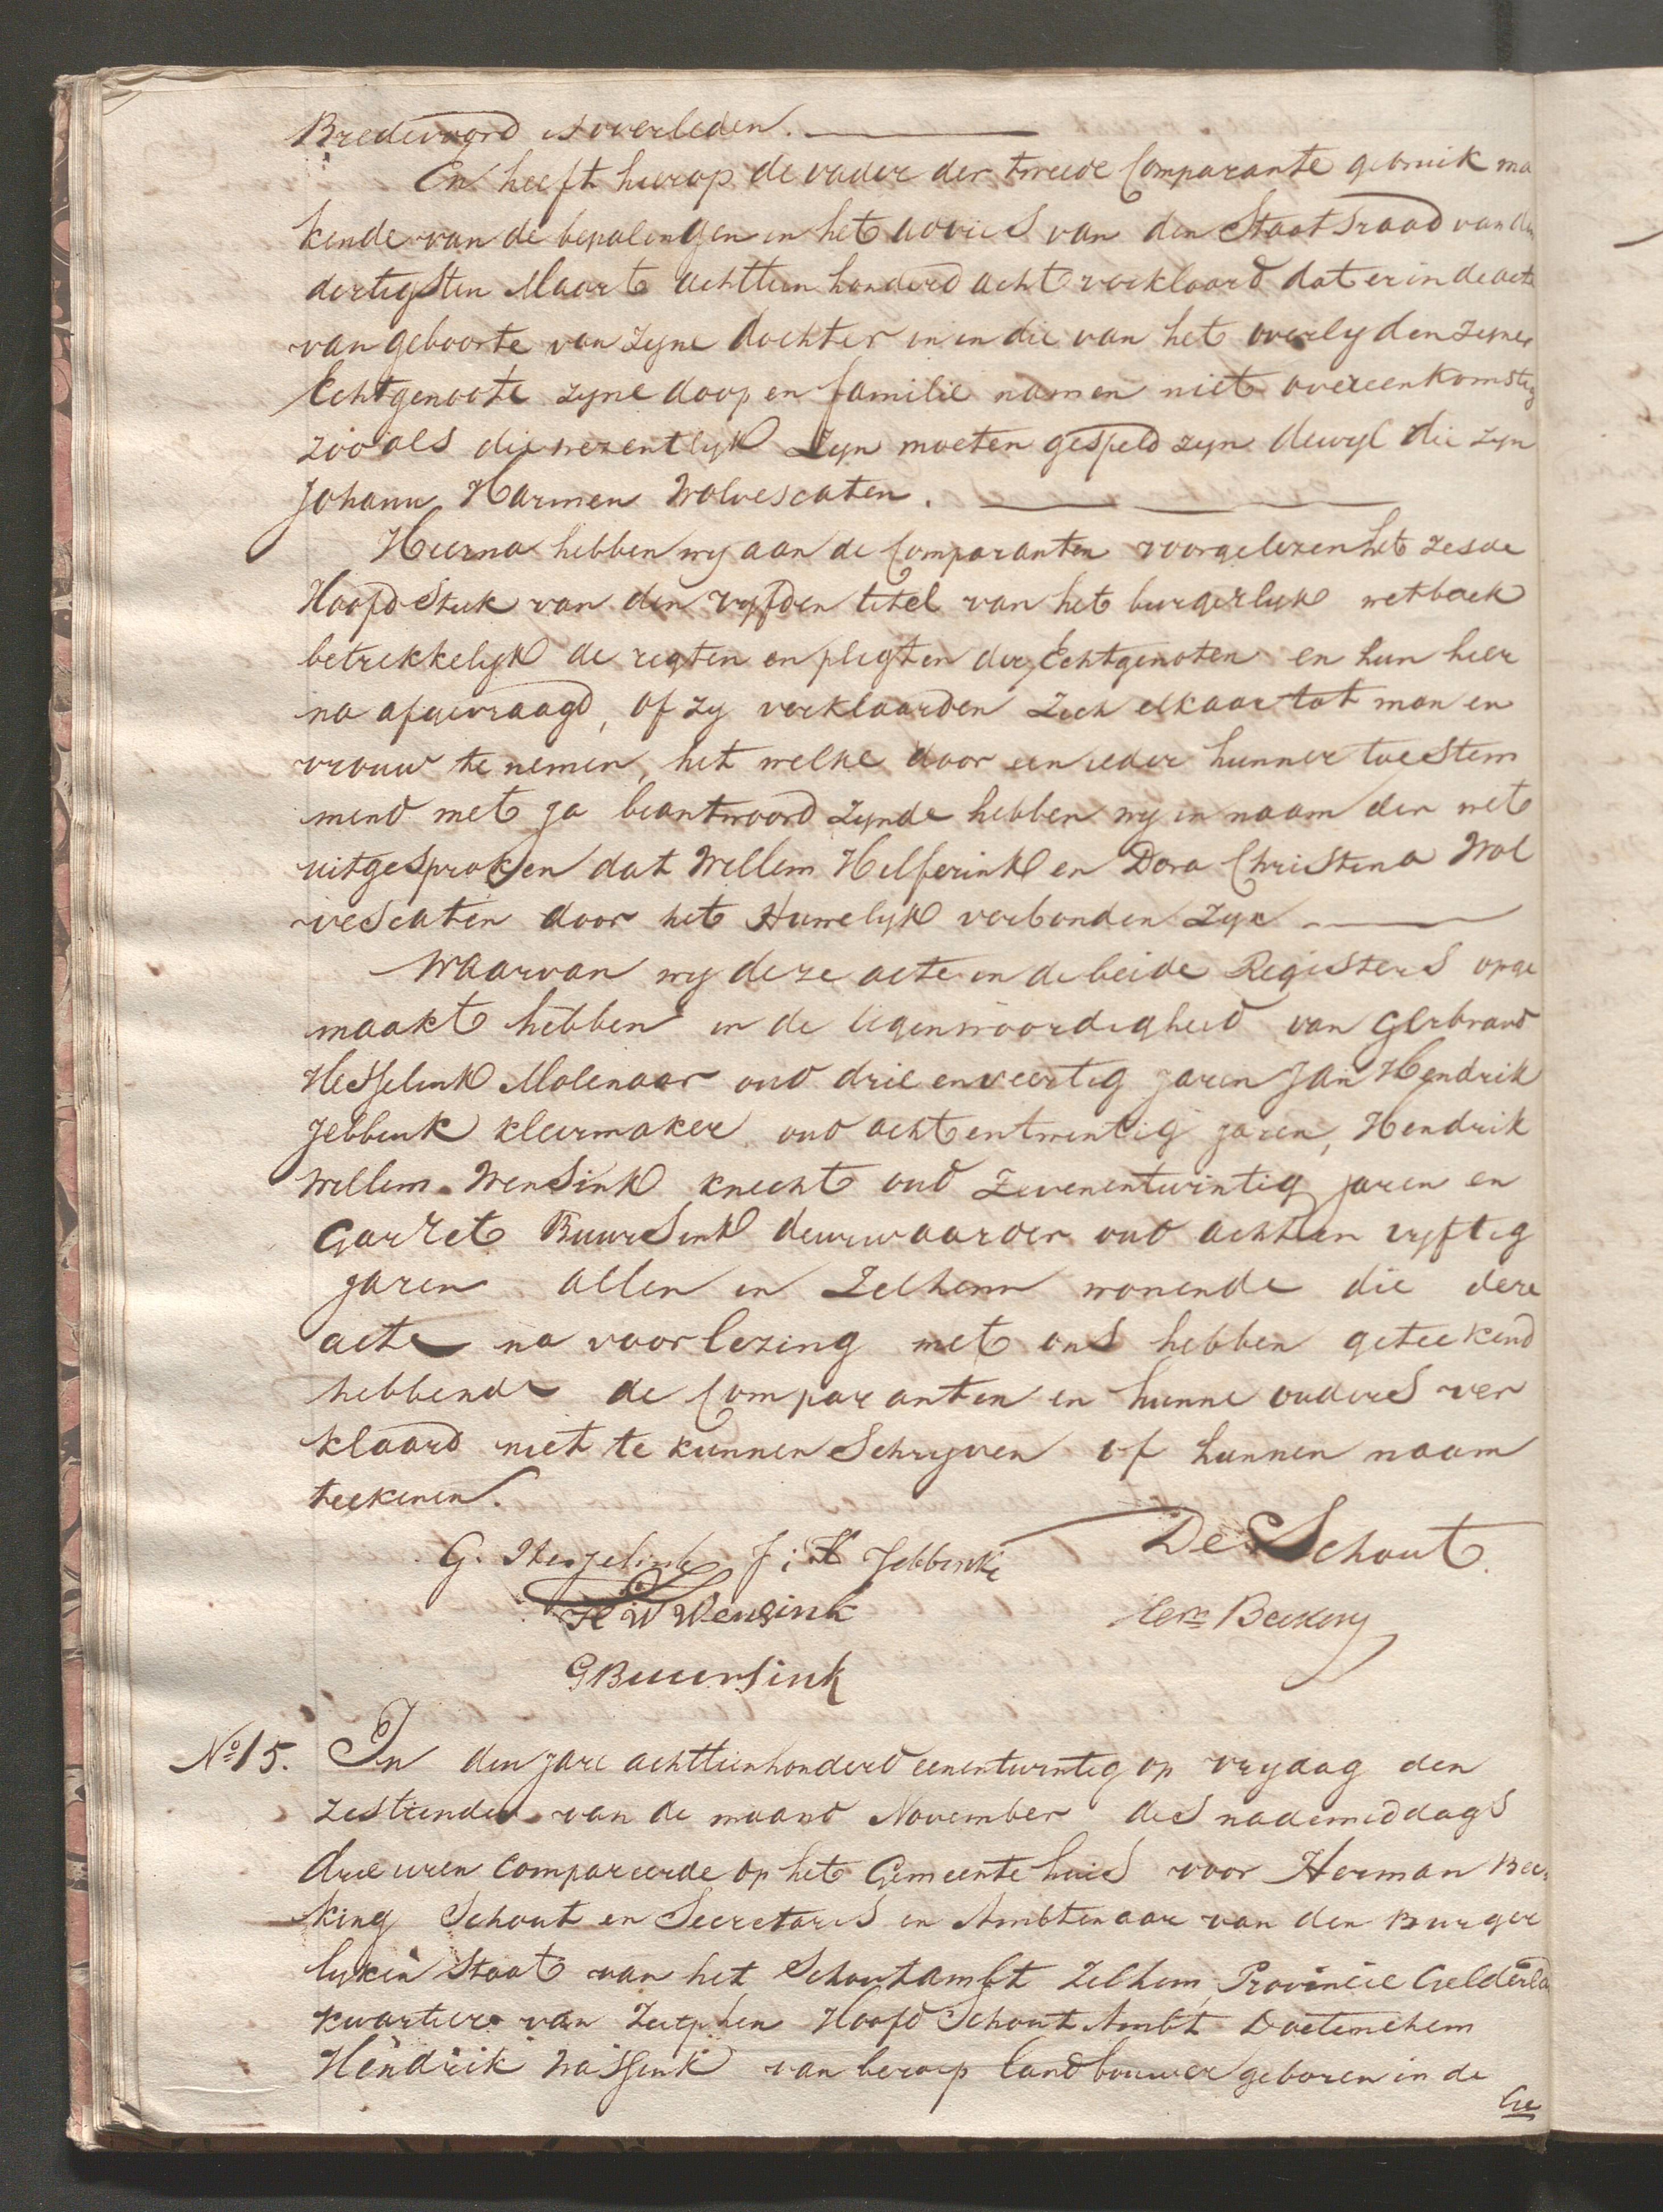 Bredevoord is overleden.
En heeft hierop de vader der tweede Comparante gebruik ma
kende van de bepalingen in het advies van den Staatsraad van den
dertigsten Maart achttien honderd acht verklaard dat er in de acte
van geboorte van zyne dochter en in die van het overlyden zyner
Echtgenoote zyne doop en familie namen niet overeenkomstig
zooals die wezentlyk zyn moeten gespeld zyn dewyl die zyn
Johann Harmen Wolvescaten.
Hierna hebben wy aan de Comparanten voorgelezen het zesde
Hoofdstuk van den vyfden titel van het burgerlyk wetboek
betrekkelyk de regten en pligten der Echtgenoten en hun hier
na afgevraagd, of zy verklaarden zich elkaar tot man en
vrouw te nemen, het welke door een ieder hunner toestem
mend met ja beantwoord zynde hebben wy in naam der wet
uitgesproken dat Willem Helferink en Dora Christina Wol
vescaten door het Huwelyk verbonden zyn
Waarvan wy deze acte in de beide Registers opge
maakt hebben in de tegenwoordigheid van Gerbrand
Hesselink Molenaar oud drie en veertig jaren Jan Hendrik
Jebbink kleermaker oud achtentwintig jaren, Hendrik
Willem Wensink knecht oud zevenentwintig jaren en
Garret Buursink deurwaarder oud achtenvyftig
jaren allen in Zelhem wonende die deze
acte na voorlezing met ons hebben geteekend
hebbende de Comparanten en hunne ouders ver
klaard niet te kunnen Schryven of hunnen naam
teekenen.
G. Hesselink J: H Jebbink De Schout.
H W Wensink Herm Beeking
GBuursink
No 15. In den jare achttienhonderd eenentwintig op vrydag den
zestienden van de maand November des nademiddags
drie uren compareerde op het Gemeente huis voor Herman Bee
king Schout en Secretaris en Ambtenaar van den Burger
lyken Staat van het Schoutambt Zelhem, Provincie Gelderland
kwartier van Zutphen Hoofd Schout Ambt Doetinchem
Hendrik Wassink van beroep landbouwer geboren in de
Ge